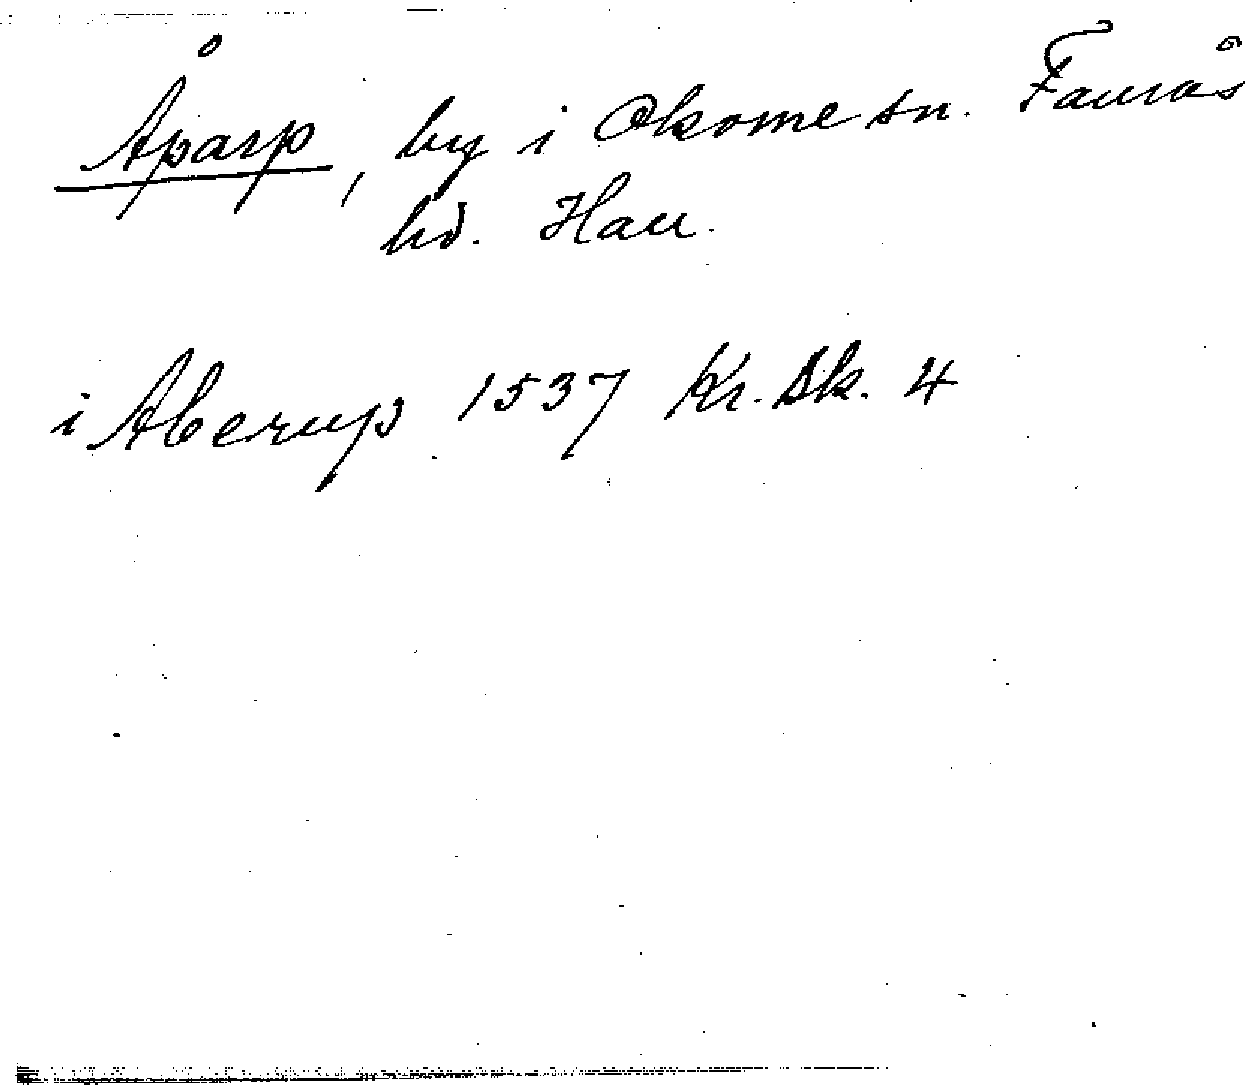 Åparp, by i Okome sn. Faurås
hd. Hall.
i Aberup 1537 Kr. Sk. 4